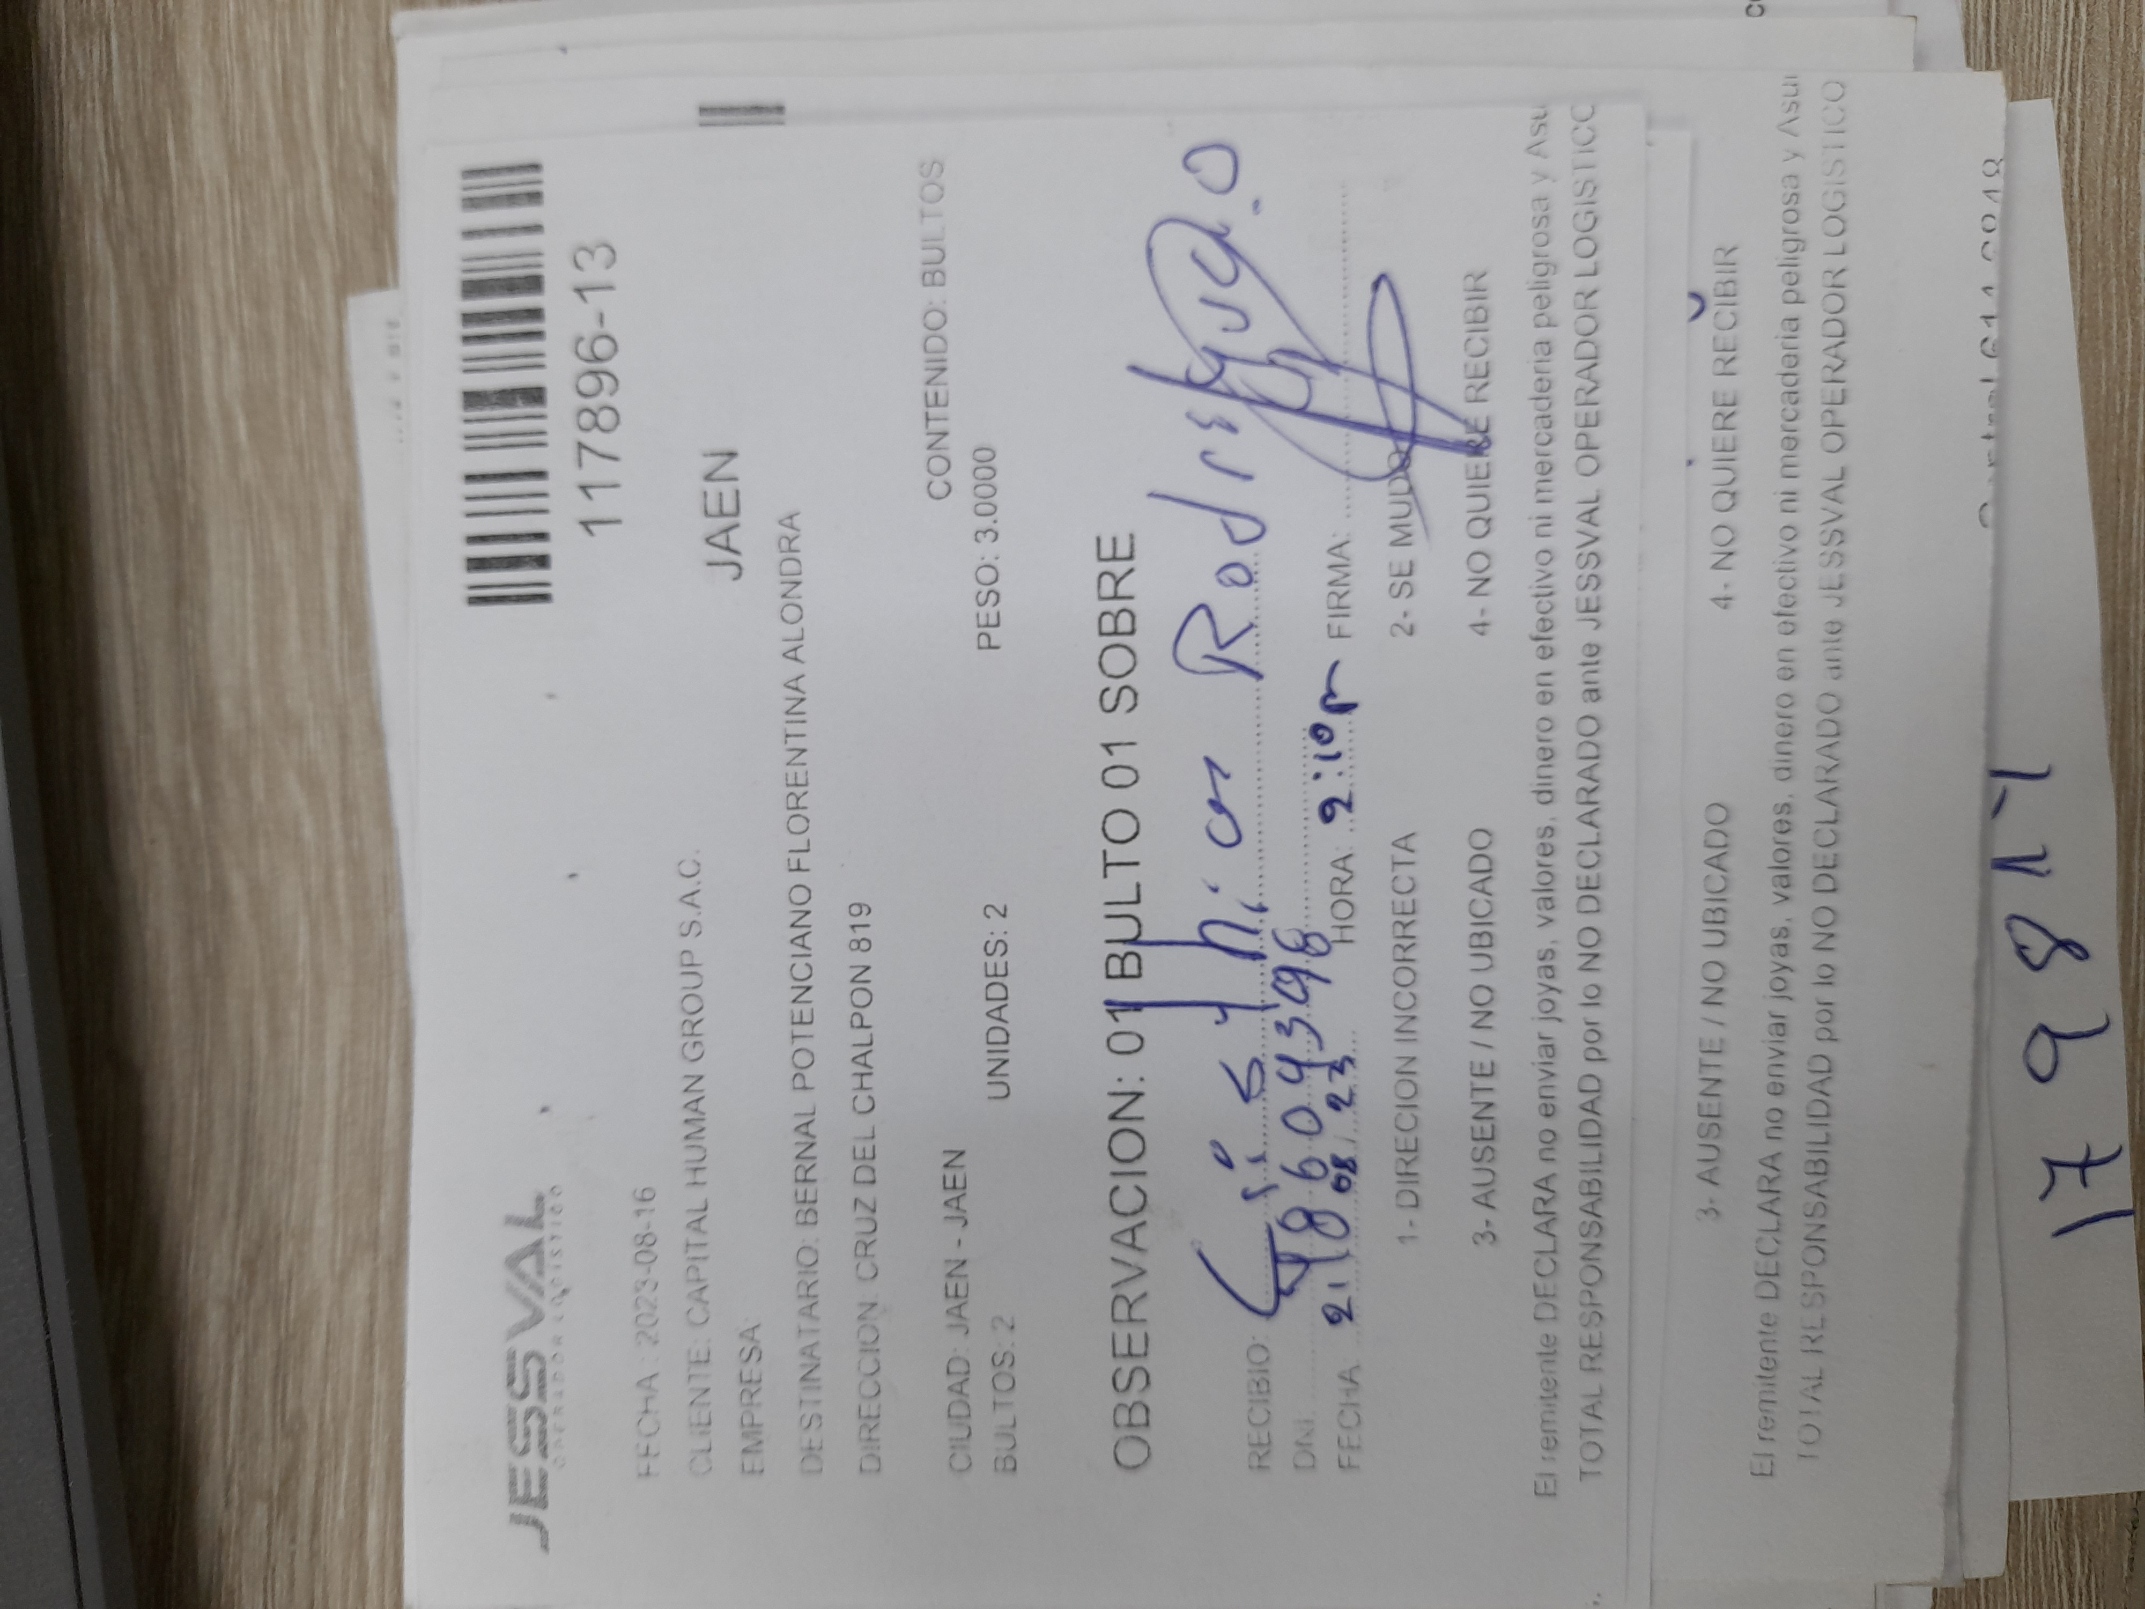 JESSVAL
OPERADOR LOGISTICO
117896-13
FECHA : 2023-08-16
CLIENTE: CAPITAL HUMAN GROUP S.A.C.
JAEN
EMPRESA:
DESTINATARIO: BERNAL POTENCIANO FLORENTINA ALONDRA
DIRECCION: CRUZ DEL CHALPON 819
CONTENIDO: BULTOS
CIUDAD: JAEN - JAEN
BULTOS: 2 UNIDADES: 2 PESO: 3.0000
OBSERVACION: 01 BULTO 01 SOBRE
RECIBIO:
DNI
FECHA 21/08/23 HORA: 2:10p FIRMA:
1- DIRECION INCORRECTA 2- SE MUDO
3- AUSENTE / NO UBICADO 4- NO QUIERE RECIBIR
El remitente DECLARA no enviar joyas, valores, dinero en efectivo ni mercaderia peligrosa y Asu
TOTAL RESPONSABILIDAD por lo NO DECLARADO ante JESSVAL OPERADOR LOGISTICO
3- AUSENTE / NO UBICADO 4- NO QUIERE RECIBIR
El remitente DECLARA no enviar joyas, valores, dinero en efectivo ni mercaderia peligrosa y Asu
TOTAL RESPONSABILIDAD por lo NO DECLARADO ante JESSVAL OPERADOR LOGISTICO